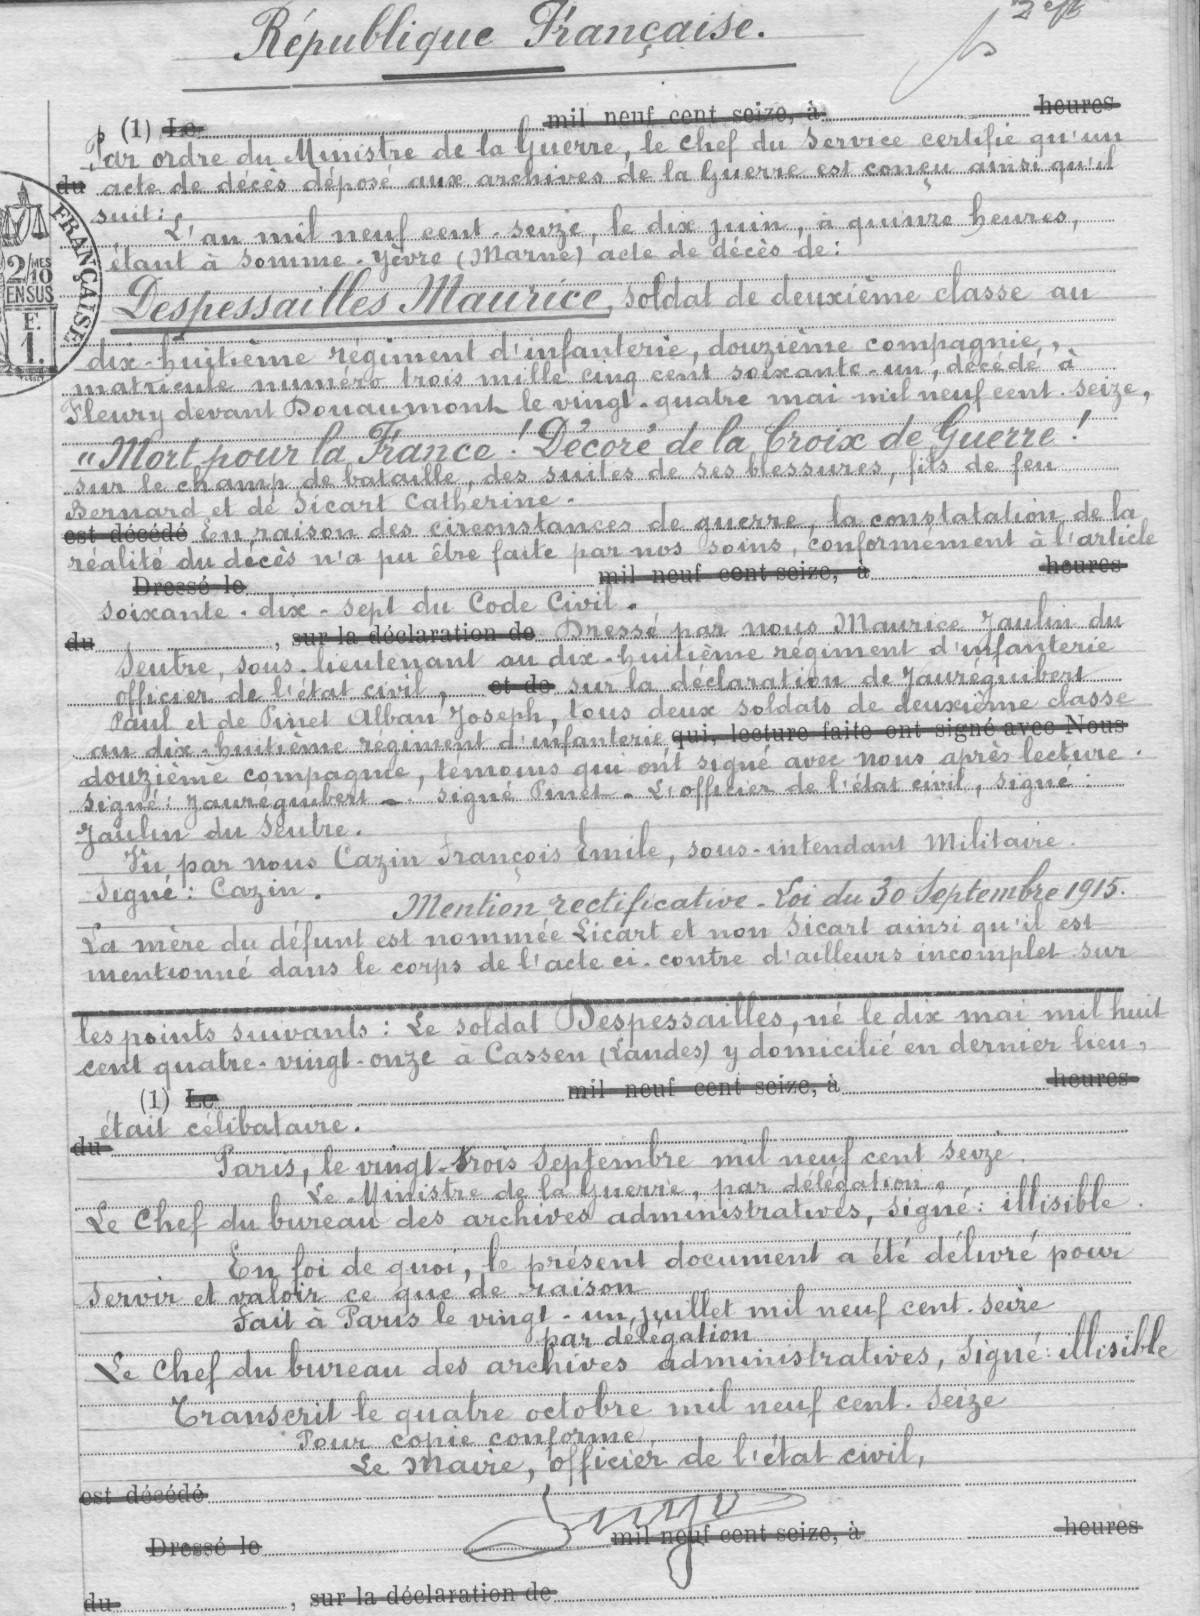 République Française.
(1) Le mil neuf cent seize, à heures
Par ordre du Ministre de la Guerre, le Chef du Service certifie qu'un
du acte de décès déposé aux archives de la Guerre est conçu ainsi qu'il
suit:
L'an mil neuf cent-seize, le dix juin, à quinze heures,
étant à Somme-Yèvre (Marne) acte de décès de:
Despessailles Maurice, soldat de deuxième classe au
dix-huitième régiment d'infanterie, douzième compagnie,
matricule numéro trois mille cinq cent soixante-un, décédé à
Fleury devant Douaumont le vingt-quatre mai mil neuf cent-seize,
"Mort pour la France! Décoré de la Croix de Guerre!
sur le champ de bataille, des suites de ses blessures, fils de feu
Bernard et de Sicart Catherine.
est décédé En raison des circonstances de guerre, la constatation de la
réalité du décès n'a pu être faite par nos soins, conformement à l'article
Dressé le mil neuf cent seize, à heures
soixante-dix-sept du Code Civil.
du , sur la déclaration de Dressé par nous Maurice Jaulin du
Seutre, sous-lieutenant au dix-huitième régiment d'infanterie
officier de l'état civil, et de sur la déclaration de Jauréguibert
Paul et de Pinet Alban Joseph, tous deux soldats de deuxième classe
au dix-huitième régiment d'infanterie, qui, lecture faite ont signé avec Nous
douzième compagnie, témoins qui ont signé avec nous après lecture.
Signé: Jauréguibert -. signé Pinet-. L'officier de l'état civil, signé:
Jaulin du Seutre.
Vu par nous Cazin François Emile, sous-intendant Militaire.
Signé: Cazin.
Mention rectificative-Loi du 30 Septembre 1915.
La mère du défunt est nommée Licart et non Sicart ainsi qu'il est
mentionné dans le corps de l'acte ci-contre d'ailleurs incomplet sur
les points suivants: Le soldat Despessailles, né le dix mai mil huit
cent quatre-vingt-onze à Cassen (Landes) y domicilié en dernier lieu,
(1) Le mil neuf cent seize, à heures
était célibataire.
du
Paris, le vingt-trois Septembre mil neuf cent seize.
Le Ministre de la Guerre, par délégation.
Le Chef du bureau des archives administratives, signé: illisible.
En foi de quoi, le présent document a été délivré pour
servir et valoir ce que de raison
Fait à Paris le vingt-un juillet mil neuf cent-seize
par délégation
Le Chef du bureau des archives administratives, Signé: illisible
Transcrit le quatre octobre mil neuf cent-seize
Pour copie conforme,
Le Maire, officier de l'état civil,
est décédé
Dressé le mil neuf cent seize, à heures
du , sur la déclaration de
FRANÇAISE
2/10 MES
EN SUS
F.
1.